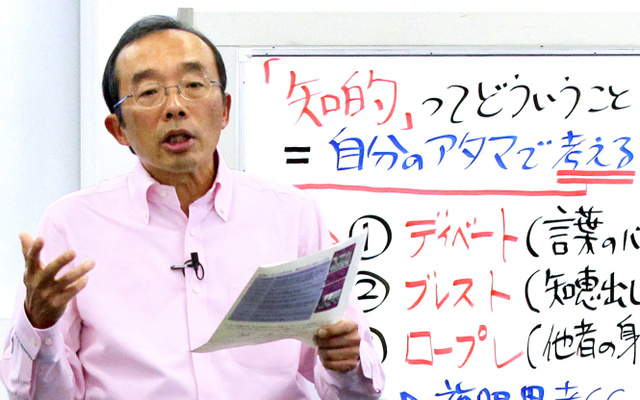 「知的」ってどういうこと
= 自分のアタマで考える
① ディベート(言葉のバ
② ブレスト(知恵出し
ロープレ(他者の身